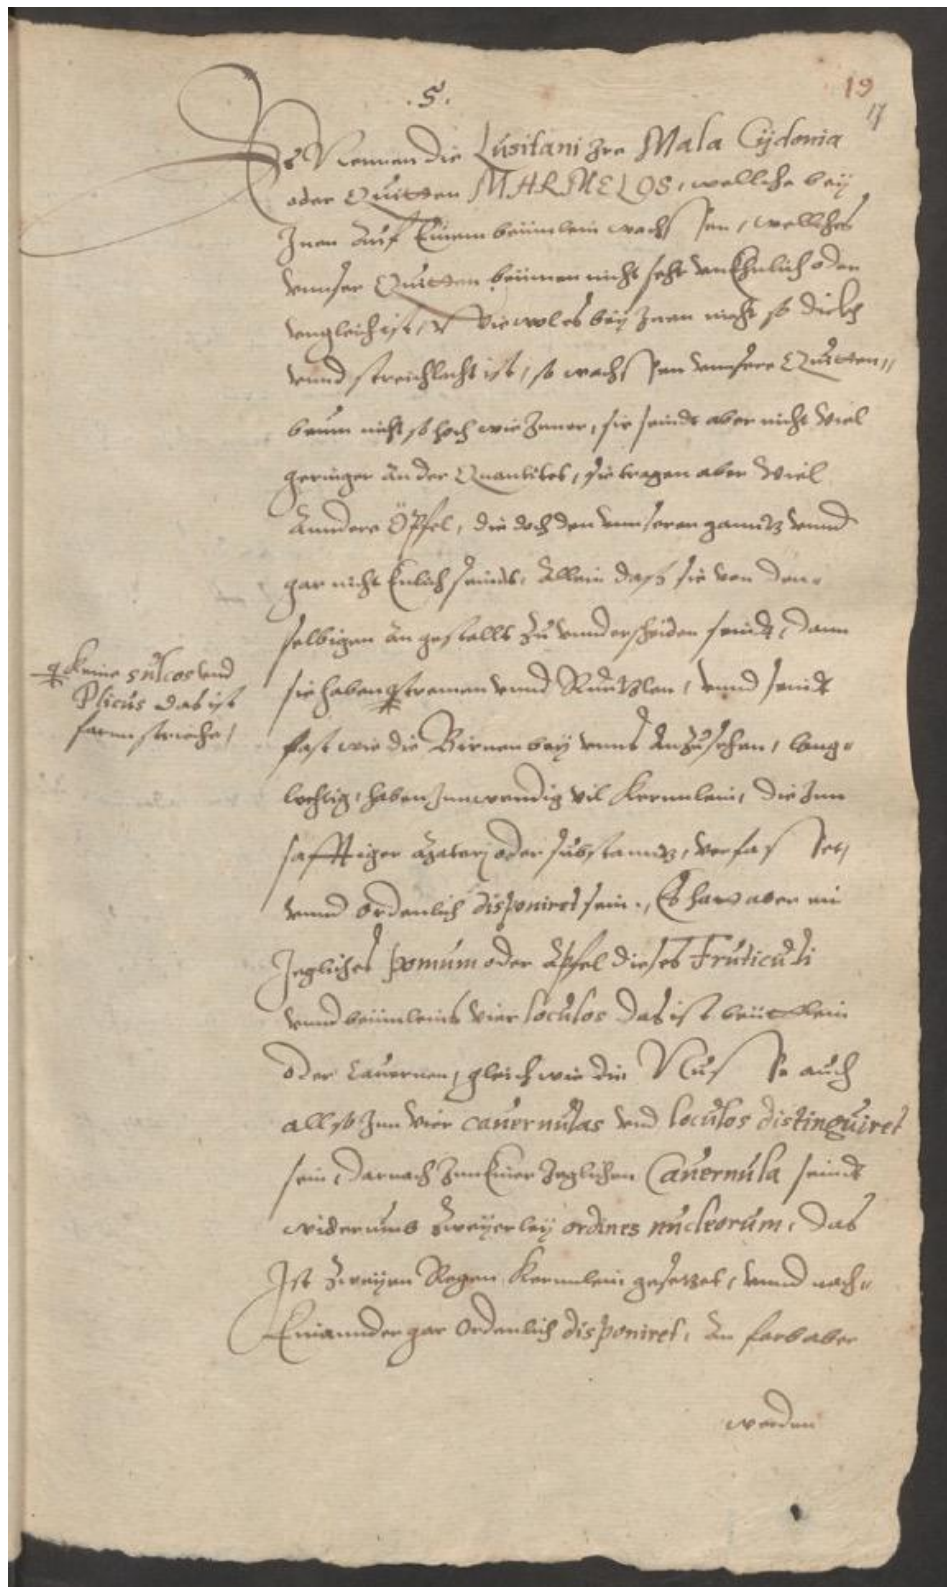 19
17
.5.
Es Nennen die Lusitani Ire Mala Cÿdonia
oder Quitten MARMELOS, welliche beÿ
Inen auf Einem beümlein wachssen, welliches
unnser Quitten beümen nicht sehr unEhnlich oder
ungleich ist, wiewol es beÿ Inen nicht so dickh
unnd streichlecht ist, so wachssen unnsere Quitten,,
beum nicht so hoch wie Jener, sie seindt aber nicht viel
geringer an der Quantitet, sie tragen aber viel
Anndere Öpfel, die doch den unnseren ganntz unnd
gar nicht Enlich seindt, Allein daß sie von den=
selbigen an gestallt zu underscheiden seindt, dann
sie haben stremen unnd Runtzlen, unnd seindt
fast wie die Birnen beÿ unns Anzusehen, lang=
lechtig, haben Innwendig vil Kernnlein, die Inn
safftiger oder substanntz, verfasset,
unnd ordenlich disponiret sein., Es hat aber ein
Jegliches pomum oder Apfel dieses Fruticuli
unnd beümleins vier loculos das ist beüttlein
oder Cauernen, gleich wie die Nüsse auch
allso Inn vier cauernulas und loculos distinguiret
sein, darnach Inn Einer Jeglichen Cauernula seindt
widerumb zweÿerleÿ ordines nucleorum, das
Ist zweÿen Regen Kernnlein gesetzet, unnd nach=
Einannder gar ordenlich disponiret, An farb aber
werden
keine sulcos und
Plicus das ist
strieche,